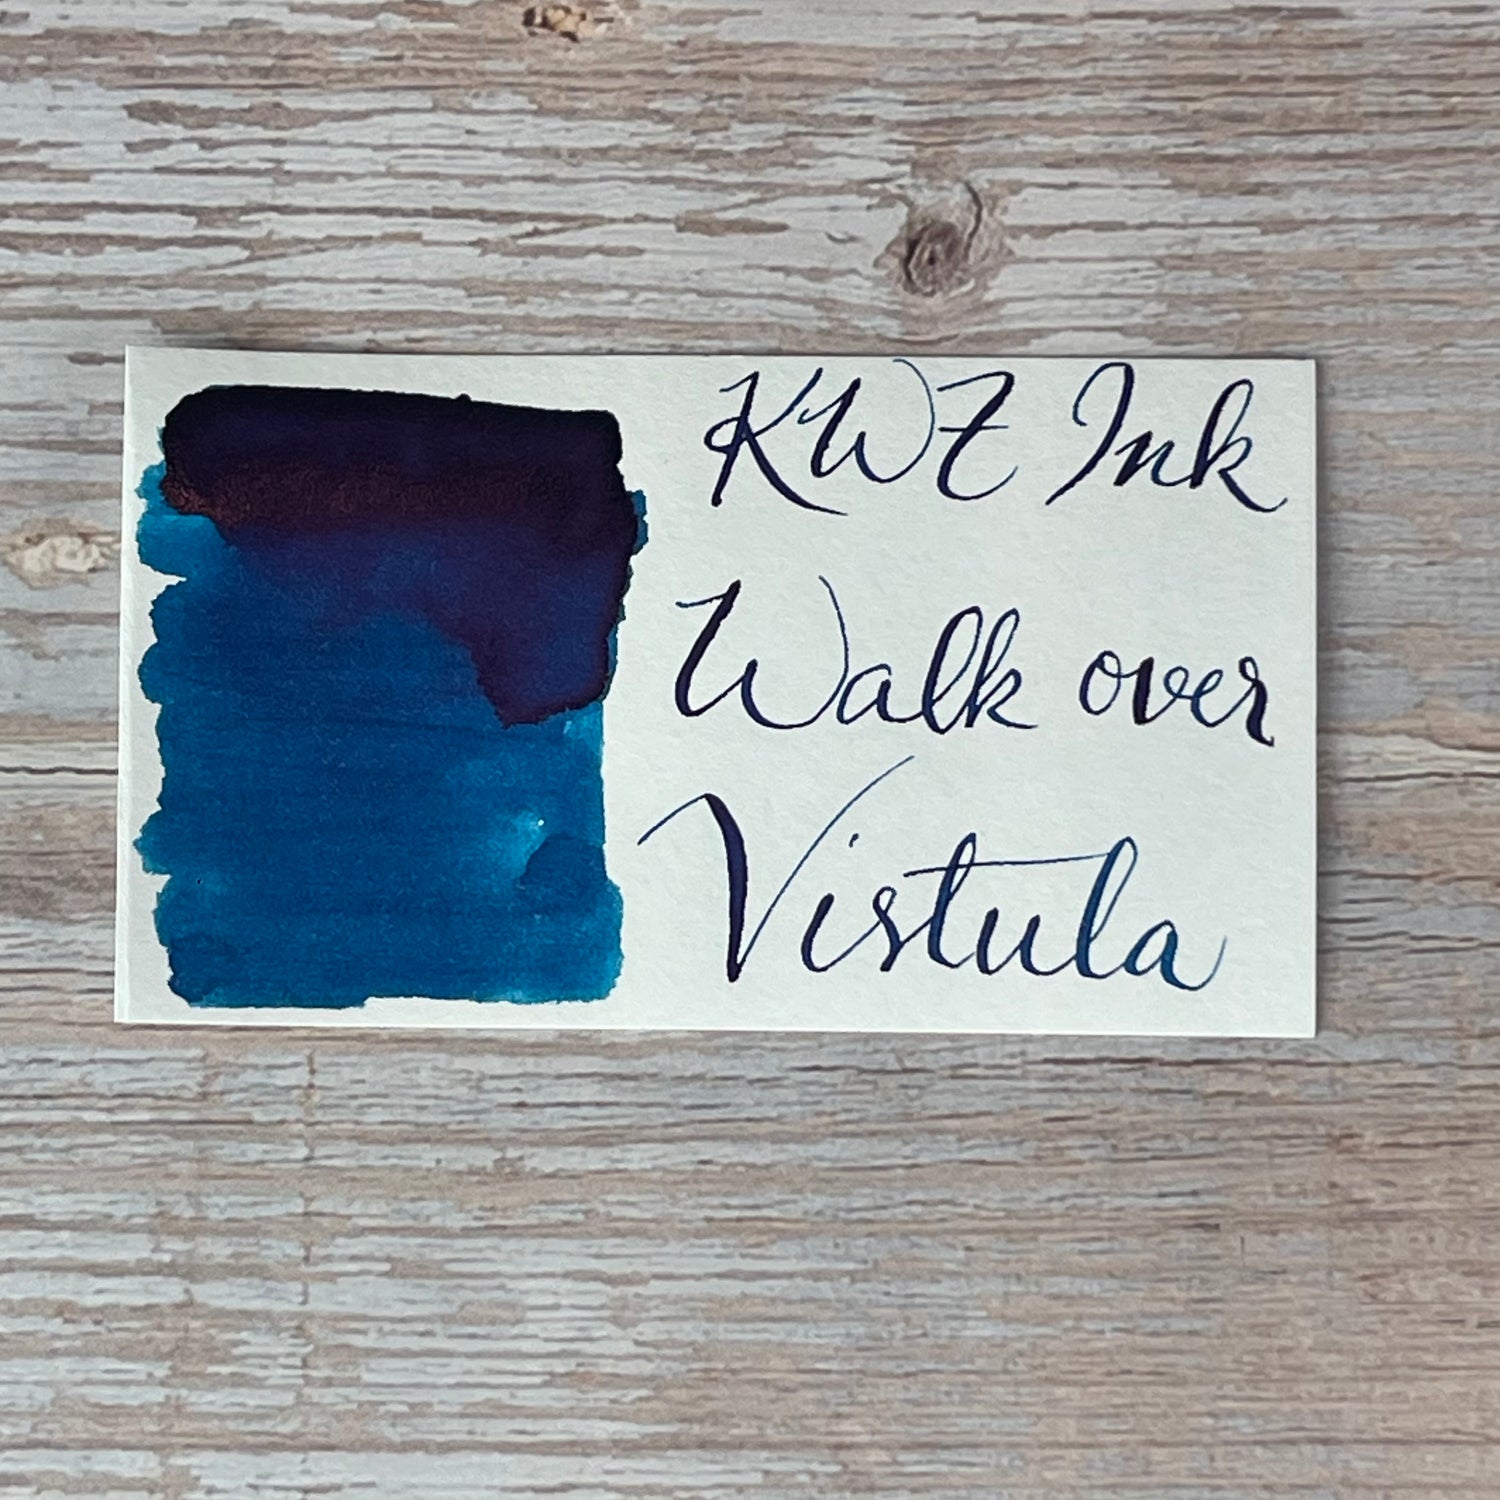 KWZ Ink
Walk over
Vistula